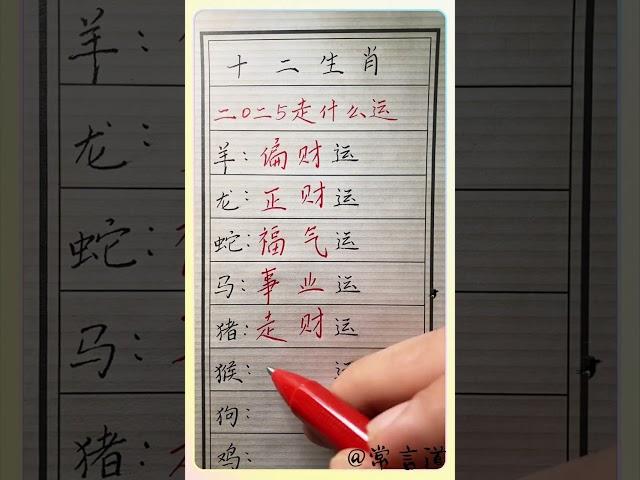 十二生肖
二0二5走什么运
羊：偏财运
龙：正财运
蛇：福气运
马：事业运
猪：走财运
猴： 运
狗：
鸡：
@常言道
羊：
龙：
蛇：
马：
猪：